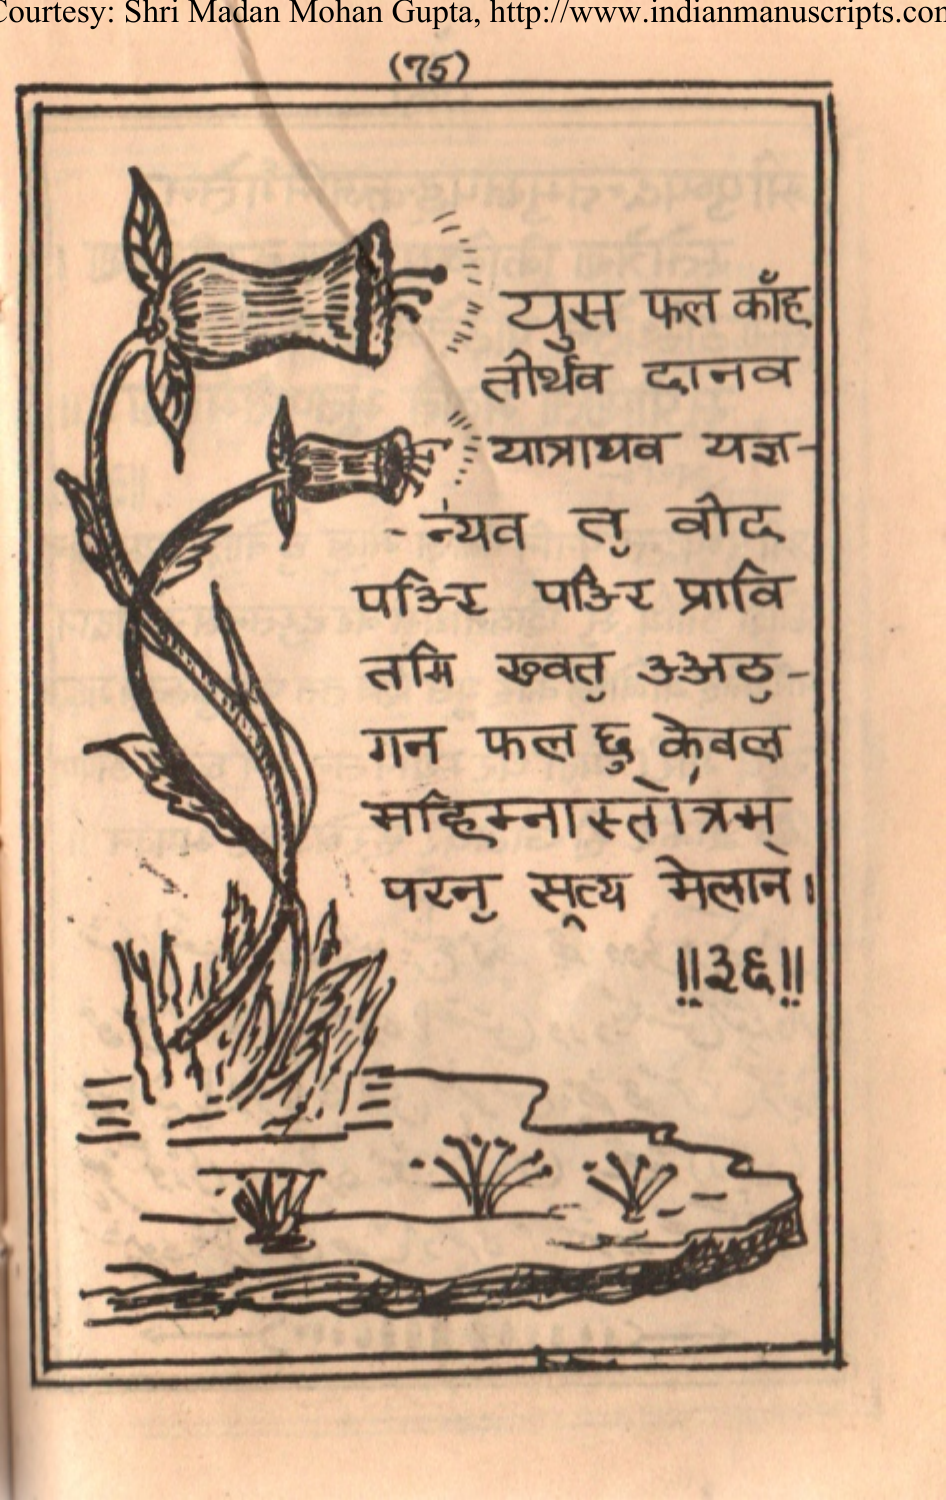 Courtesy: Shri Madan Mohan Gupta, http://www.indianmanuscripts.com
(75)
युस फल काँह
तीर्थव दानव
यात्रायव यज्ञ-
-न्यव तॖ वीद
पॅरि पॅरि प्रावि
तमि ख्वतॖ अॅठॖ-
गन फल छु केवल
महिम्नास्तोत्रम्
परनॖ सूत्य मेलान।
॥३६॥